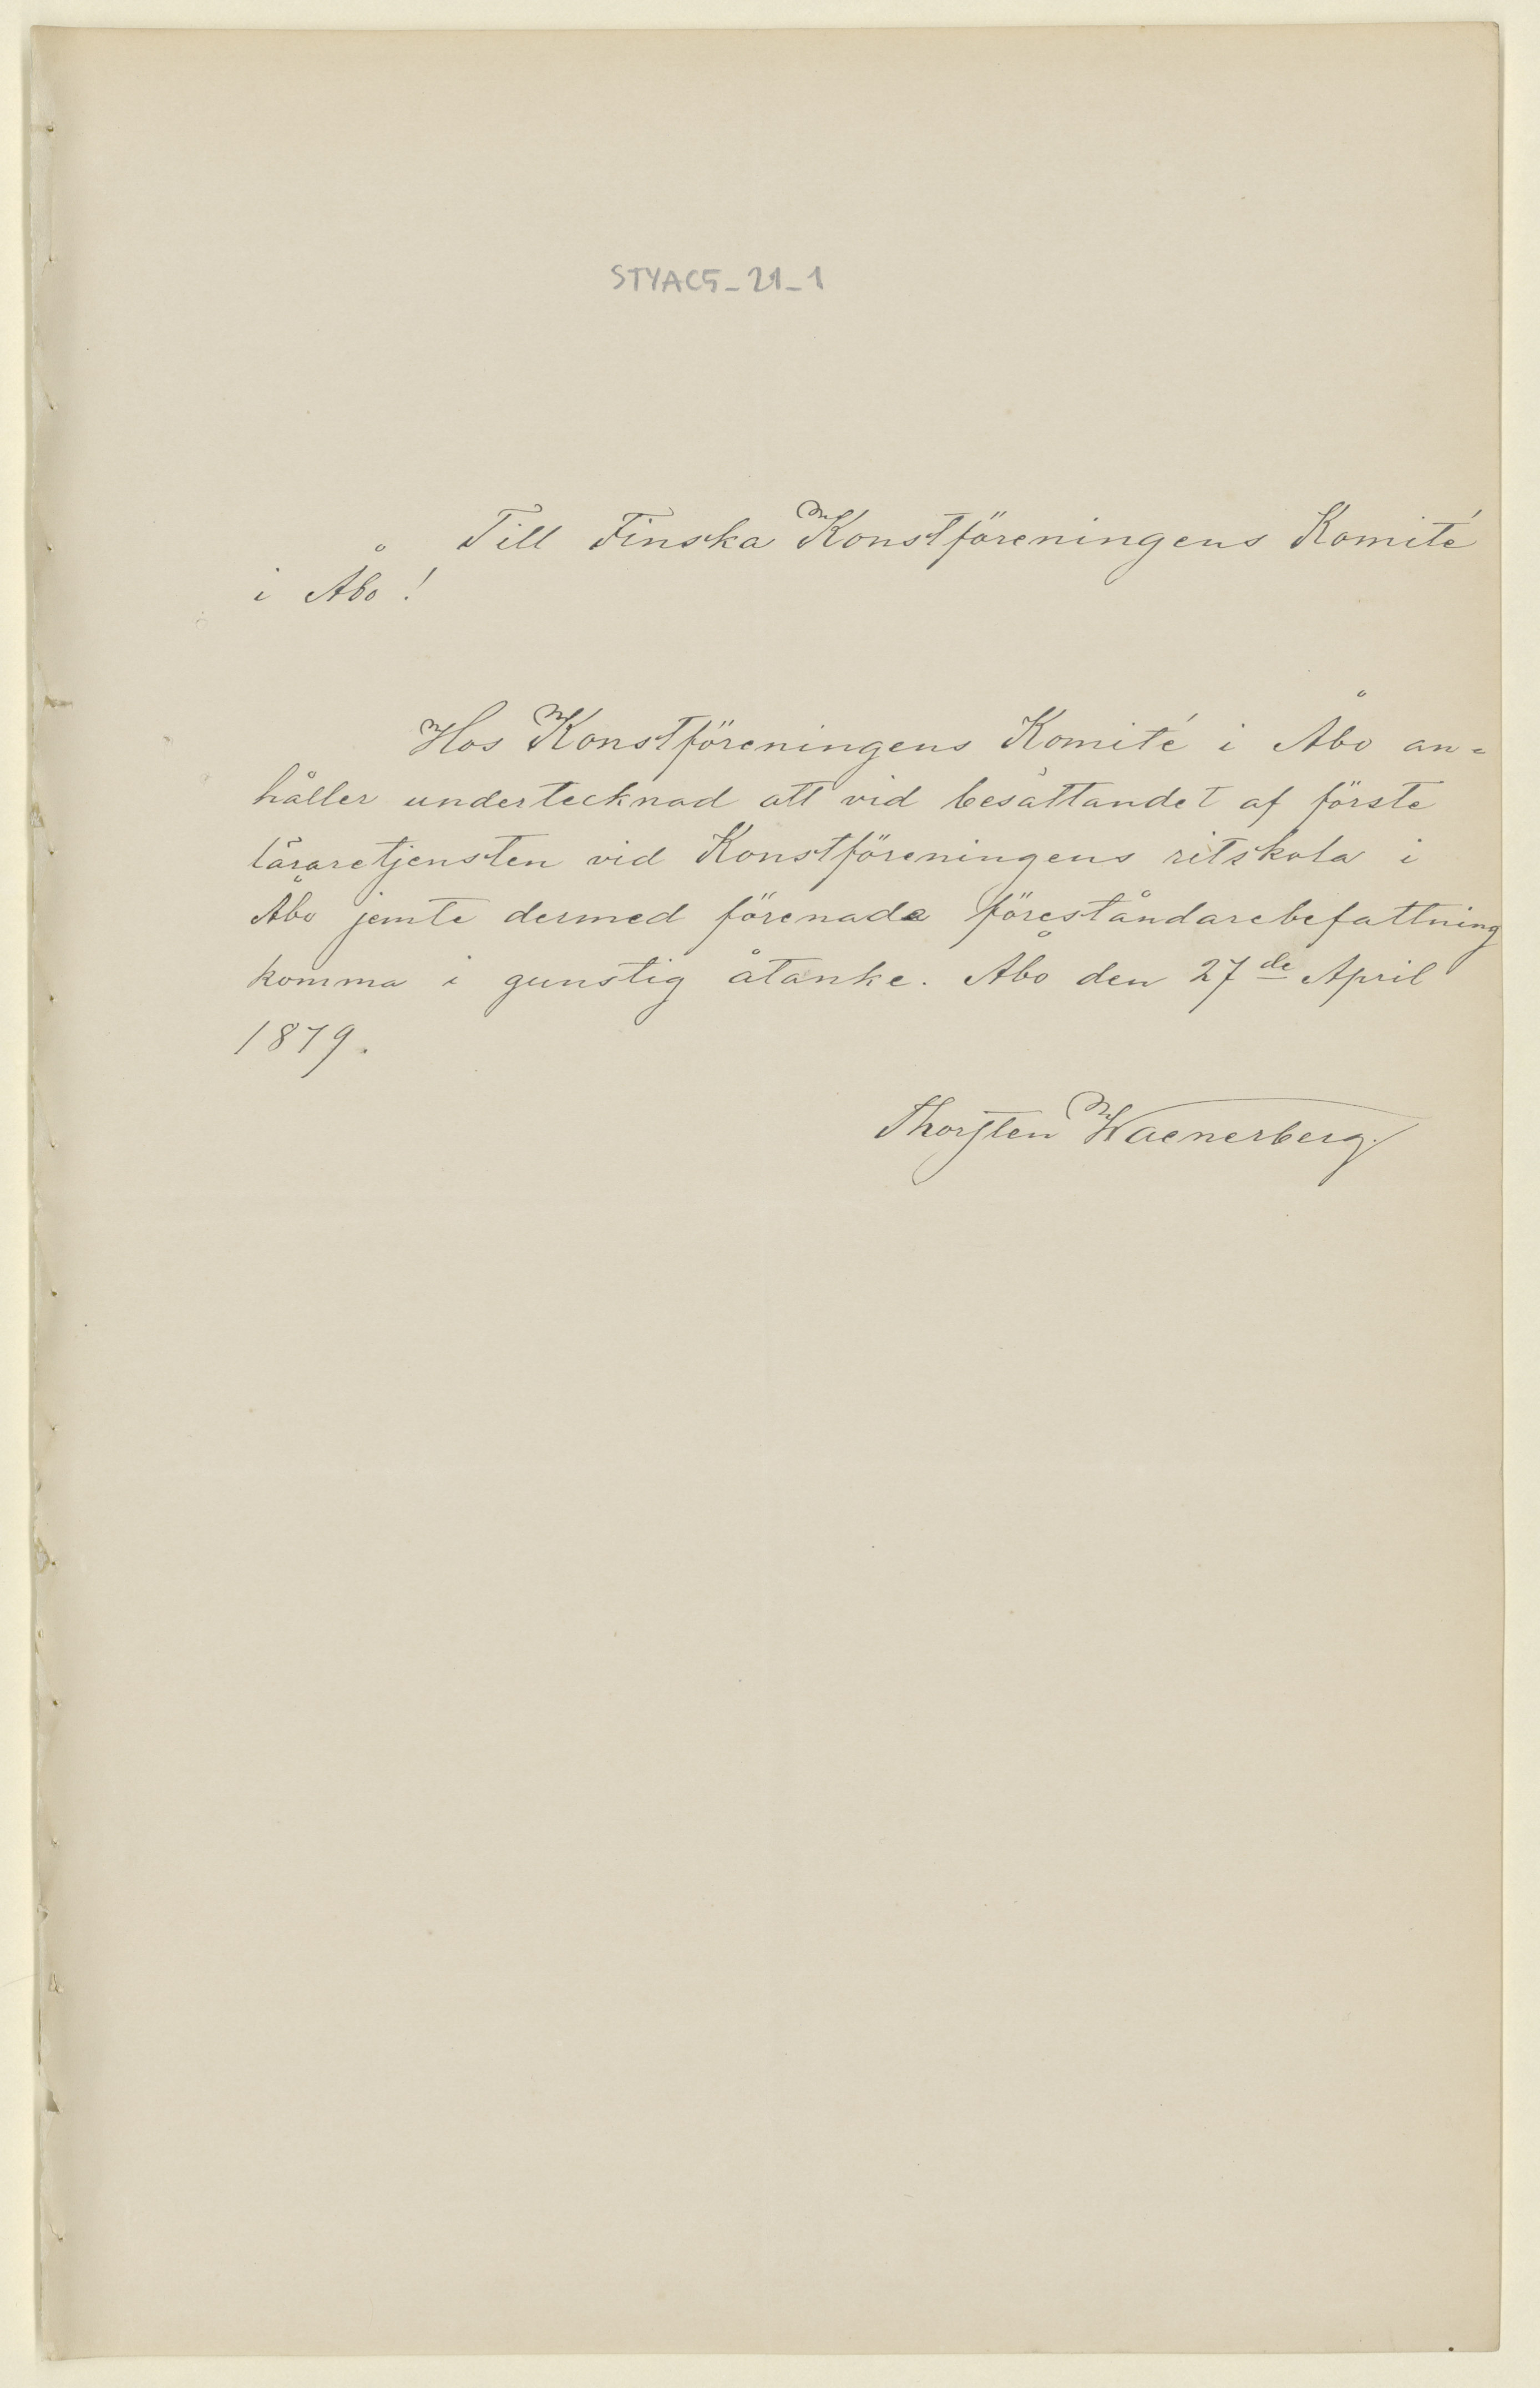 STYAC5_21_1
Till Finska Konstföreningens Komité
i Åbo!
Hos Konstföreningens Komité i Åbo an=
håller undertecknad att vid besättandet af förste
läraretjensten vid Konstföreningens ritskola i
Åbo jemte dermed förenade föreståndarebefattning
komma i gunstig åtanke. Åbo den 27de April
1879.
Thorsten Waenerberg.